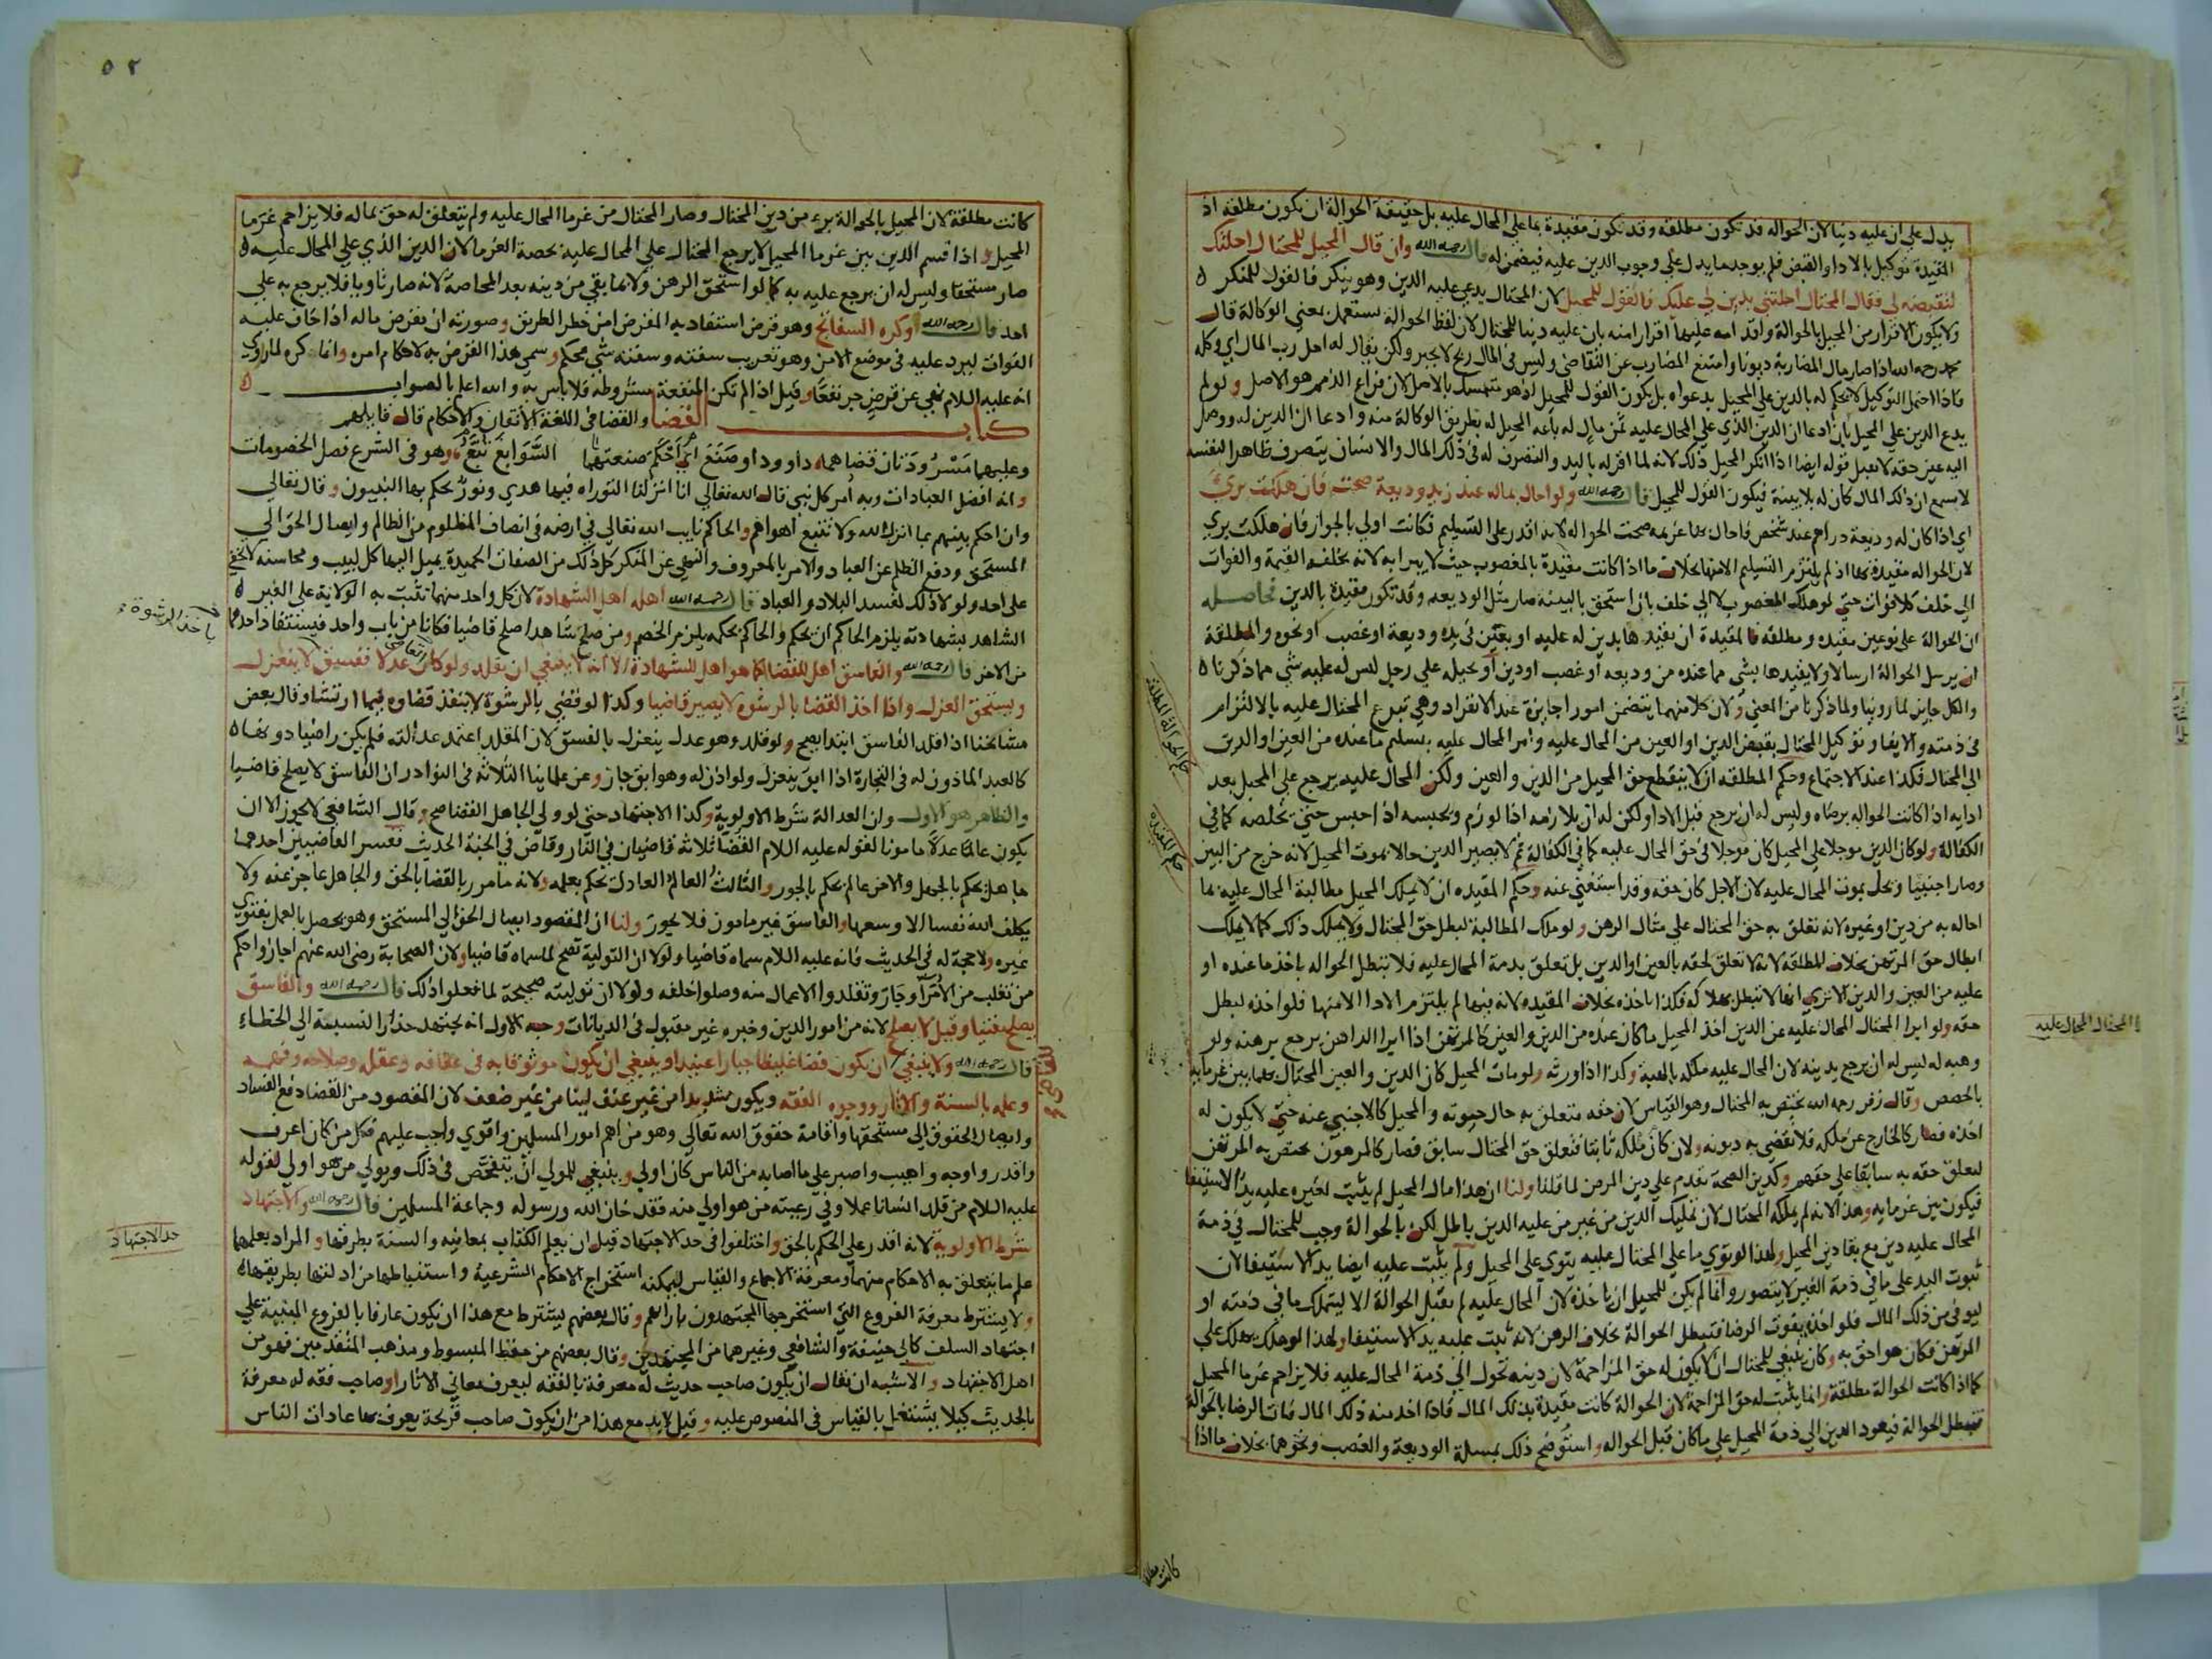 يدل على ان عليه دينا لان الحواله قد تكون مطلقه وقد تكون مقيدة بما على المحال عليه بل حقيقة الحوالة ان يكون مطلقه اذ
المقيدة توكيل بالادا والقبض فلم يوجد ما يدل على وجوب الدين عليه فيضمن له قال رحمه الله وان قال المحيل للمحتال احلتك
لتقبضه لي فقال المحتال احلتني بدين لي عليك فالقول للمحيل لان المحتال يدعي عليه الدين وهو ينكر فالقول للمنكر
ولا يكون الاقرار من المحيل بالحوالة واقدامه عليها اقرارا منه بان عليه دينا للمحتال لان لفظ الحوالة تستعمل بمعني الوكالة قال
محمد رحمه الله اذا صار مال المضاربة ديونا وامتنع المضارب عن التقاضي وليس في المال ربح لا يجبر ولكن يقال له احل رب المال اي وكله
فاذا احتمل التوكيل لا يحكم له بالدين على المحيل بدعواه بل يكون القول للمحيل اذ هو متمسك بالاصل لان فراغ الذمم هو الاصل ولو لم
يدع الدين على المحيل بان ادعا ان الدين الذي على المحال عليه ثمن مال له باعه المحيل له بطريق الوكالة منه وادعا ان الدين له ووصل
اليه عين حقه لا يقبل قوله ايضا اذا انكر المحيل ذلك لانه لما اقر له باليد والتصرف له في ذلك المال والانسان يتصرف ظاهرا لنفسه
لا يسمع ان ذلك المال كان له بلا بينة فيكون القول للمحيل قال رحمه الله ولو احال بماله عند زيد وديعة صحت فان هلكت بري
اي اذا كان له وديعة دراهم عند شخص فاحال بها غريمه صحت الحواله لانه اقدر على التسليم فكانت اولي بالجواز فان هلكت بري
لان الحواله مقيدة بها اذ لم يلتزم التسليم الا منها بخلاف ما اذا كانت مقيدة بالمغصوب حيث لا يبرا به لانه يخلفه القيمة والفوات
الي خلف كلا فوات حتي لو هلك المغصوب لا الي خلف بان استحق بالبينه صار مثل الوديعه وقد تكون مقيدة بالدين فحاصله
ان الحوالة على نوعين مقيده ومطلقه فالمقيدة ان يقيدها بدين له عليه او بعين في يده وديعة او غصب او نحوه والمطلقة
ان يرسل الحوالة ارسالا ولا يقيدها بشي مما عنده من وديعه او غصب او دين او يحيله على رجل ليس له عليه شي مما ذكرنا
والكل جايز لما روينا ولما ذكرنا من المعني ولان كلا منهما يتضمن امورا جايزة عند الانفراد وهي تبرع المحتال عليه بالالتزام
في ذمته والايفا وتوكيل المحتال بقبض الدين او العين من المحال عليه وامر المحال عليه بتسليم ما عنده من العين او الدين
الي المحتال فكذا عند الاجتماع وحكم المطلقه ان لا ينقطع حق المحيل من الدين والعين ولكن المحال عليه يرجع على المحيل بعد
ادايه اذا كانت الحواله برضاه وليس له ان يرجع قبل الادا ولكن له ان يلازمه اذا لوزم ويحبسه اذا حبس حتي يخلصه كما في
الكفالة ولو كان الدين موجلا على المحيل كان موجلا في حق المحال عليه كما في الكفالة ثم لا يصير الدين حالا بموت المحيل لانه خرج من البين
وصار اجنبيا ويحل بموت المحال عليه لان الاجل كان حقه وقد استغني عنه وحكم المقيده ان لا يملك المحيل مطالبة المحال عليه بما
احاله به من دين او غيره لانه تعلق به حق المحتال على مثال الرهن ولو ملك المطالبة لبطل حق المحتال ولا يملك ذلك كما لا يملك
ابطال حق المرتهن بخلاف المطلقة لانه لا تعلق لحقه بالعين او الدين بل تعلق بذمة المحال عليه فلا تبطل الحواله باخذ ما عنده او
عليه من العين والدين الا تري انها لا تبطل بهلاكه فكذا باخذه بخلاف المقيده لانه فيها لم يلتزم الادا الا منها فلو اخذه لبطل
حقه ولو ابرا المحتال المحال عليه عن الدين اخذ المحيل ما كان عنده من الدين والعين كالمرتهن اذا ابرا الراهن يرجع برهنه ولو
وهبه له ليس له ان يرجع بدينه لان المحال عليه ملكه بالهبة وكذا اذا ورثه ولو مات المحيل كان الدين والعين المحتال بهما بين غرمايه
بالحصص وقال زفر رحمه الله يختص به المحتال وهو القياس لان حقه متعلق به حال حيوته والمحيل كالاجنبي عنه حتي لا يكون له
اخذه فصار كالخارج عن ملكه فلا تقضي به ديونه ولان كان ملكه ثابتا فتعلق حق المحتال سابق فصار كالمرهون يختص به المرتهن
لتعلق حقه به سابقا على حقهم وكدين الصحة تقدم على دين المرض لما قلنا ولنا ان هذا مال المحيل لم يثبت لغيره عليه يد الاستيفا
فيكون بين غرمايه وهذا لانه لم يملكه المحتال لان تمليك الدين من غير من عليه الدين باطل لكن بالحوالة وجب للمحتال في ذمة
المحال عليه دين مع بقا دين المحيل ولهذا لو توي ما على المحتال عليه يتوي على المحيل ولم يثبت عليه ايضا يد الاستيفا لان
ثبوت اليد على ما في ذمة الغير لا يتصور وانما لم يكن للمحيل ان ياخذه لان المحال عليه لم يقبل الحوالة الا ليتملك ما في ذمته او
ليوفي من ذلك المال فلو اخذه يفوت الرضا فتبطل الحوالة بخلاف الرهن لانه ثبت عليه يد الاستيفا ولهذا لو هلك يهلك على
المرتهن فكان هو احق به وكان ينبغي للمحتال ان لا يكون له حق المزاحمة لان دينه تحول الي ذمة المحال عليه فلا يزاحم غرما المحيل
كما اذا كانت الحوالة مطلقة وانما يثبت له حق المزاحمة لان الحوالة كانت مقيدة بذلك المال فاذا اخذ منه ذلك المال فات الرضا بالحوالة
فتبطل الحوالة فيعود الدين الي ذمة المحيل على ما كان قبل الحواله واستوضح ذلك بمسلة الوديعة والغصب ونحوهما بخلاف ما اذا
حكم الحوالة المطلقة
حكم المقيده
المحتال المحال عليه
كانت مطلقة
٥٢
كانت مطلقة لان المحيل بالحوالة برء من دين المحتال وصار المحتال من غرما المحال عليه ولم يتعلق له حق بماله فلا يزاحم غرما
المحيل واذا قسم الدين بين غرما المحيل لا يرجع المحتال على المحال عليه بحصة الغرما لان الدين الذي على المحال عليه
صار مستحقا وليس له ان يرجع عليه به كما لو استحق الرهن ولا بما بقي من دينه بعد المحاصة لانه صار تاويا فلا يرجع به على
احد قال رحمه الله وكره السفاتج وهو قرض استفاد به المقرض امن خطر الطريق وصورته ان يقرض ماله اذا خاف عليه
الفوات ليرد عليه في موضع الامن وهو تعريب سفته وسفته شي محكم وسمي هذا القرض به لاحكام امره وانما كره لما روي
انه عليه السلام نهي عن قرض جر نفعا وقيل اذا لم تكن المنفعة مشروطة فلا باس به والله اعلم بالصواب
كتاب القضا والقضا في اللغة الاتقان والاحكام قال قايلهم
وعليهما مسرودتان قضاهما داوود او صنع السوابغ تبع اي احكم صنعتهما وهو في الشرع فصل الخصومات
وانه افضل العبادات وبه امر كل نبي قال الله تعالي انا انزلنا التوراه فيها هدي ونور يحكم بها النبيون وقال تعالي
وان احكم بينهم بما انزل الله ولا تتبع اهواهم والحاكم نايب الله تعالي في ارضه في انصاف المظلوم من الظالم وايصال الحق الي
المستحق ودفع الظلم عن العباد والامر بالمعروف والنهي عن المنكر كل ذلك من الصفات الحميدة يميل اليها كل لبيب ومحاسنه لا تخفي
على احد ولولا ذلك لفسد البلاد والعباد قال رحمه الله اهله اهل الشهادة لان كل واحد منهما تثبت به الولاية على الغير
الشاهد بشهادته يلزم الحاكم ان يحكم والحاكم بحكمه يلزم الخصم ومن صلح شاهدا صلح قاضيا فكانا من باب واحد فيستفاد احدهما
من الاخر قال رحمه الله والفاسق اهل للقضا كما هو اهل للشهادة الا انه لا ينبغي ان يقلد ولو كان عدلا ففسق لا ينعزل
ويستحق العزل واذا اخذ القضا بالرشوه لا يصير قاضيا وكذا لو قضي بالرشوة لا ينفذ قضاوه فيما ارتشا وقال بعض
مشايخنا اذا قلد الفاسق ابتدا يصح ولو قلد وهو عدل ينعزل بالفسق لان المقلد اعتمد عدالته فلم يكن راضيا دونها
كالعبد الماذون له في التجارة اذا ابق ينعزل ولو اذن له وهو ابق جاز وعن علماينا الثلاثه في النوادر ان الفاسق لا يصلح قاضيا
والظاهر هو الاول وان العدالة شرط الاولوية وكذا الاجتهاد حتى لو ولي الجاهل القضا صح وقال الشافعي لا يجوز الا ان
يكون عالما عدلا مامونا لقوله عليه السلام القضاة ثلاثة قاضيان في النار وقاض في الجنة الحديث تفسير القاضيين احدهما
جاهل يحكم بالجهل والاخر عالم يحكم بالجور والثالث العالم العادل يحكم بعلمه ولانه مامور بالقضا بالحق والجاهل عاجز عنه ولا
يكلف الله نفسا الا وسعها والفاسق غير مامون فلا يجوز ولنا ان المقصود ايصال الحق الي المستحق وهو يحصل بالعمل بفتوي
غيره ولا حجة له في الحديث فانه عليه السلام سماه قاضيا ولولا ان التولية تصح لما سماه قاضيا ولان الصحابة رضي الله عنهم اجازوا حكم
من تغلب من الامرا وجار وتقلدوا الاعمال منه وصلوا خلفه ولولا ان توليته صحيحة لما فعلوا ذلك قال رحمه الله والفاسق
يصلح مفتيا وقيل لا يصلح لانه من امور الدين وخبره غير مقبول في الديانات وجه الاول انه يجتهد حذرا لنسبته الي الخطاء
قال رحمه الله ولا ينبغي ان يكون فظا غليظا جبارا عنيدا وينبغي ان يكون موثوقا به في عفافه وعقله وصلاحه وفهمه
وعلمه بالسنة والاثار ووجوه الفقه ويكون شديدا من غير عنف لينا من غير ضعف لان المقصود من القضا دفع الفساد
وايصال الحقوق الي مستحقها واقامة حقوق الله تعالي وهو من اهم امور المسلمين واقوي واجب عليهم فكل من كان اعرف
واقدر واوجه واهيب واصبر على ما اصابه من الناس كان اولي وينبغي للمولي ان يتفحص في ذلك ويولي من هو اولي لقوله
عليه السلام من قلد انسانا عملا وفي رعيته من هو اولي منه فقد خان الله ورسوله وجماعة المسلمين قال رحمه الله والاجتهاد
شرط الاولوية لانه اقدر على الحكم بالحق واختلفوا في حد الاجتهاد قيل ان يعلم الكتاب بمعانيه والسنة بطرقها والمراد بعلمهما
علم ما يتعلق به الاحكام منهما ومعرفة الاجماع والقياس ليمكنه استخراج الاحكام الشرعية واستنباطها من ادلتها بطريقها
ولا يشترط معرفة الفروع التي استخرجها المجتهدون بارايهم وقال بعضهم يشترط مع هذا ان يكون عارفا بالفروع المبنية على
اجتهاد السلف كابي حنيفة والشافعي وغيرهما من المجتهدين وقال بعضهم من حفظ المبسوط ومذهب المتقدمين فهو من
اهل الاجتهاد والاشبه ان يقال ان يكون صاحب حديث له معرفة بالفقه ليعرف معاني الاثار او صاحب فقه له معرفة
بالحديث كيلا يشتغل بالقياس في المنصوص عليه وقيل لا بد مع هذا من ان يكون صاحب قريحة يعرف بها عادات الناس
القاضي
باخذ الرشوة
حد الاجتهاد